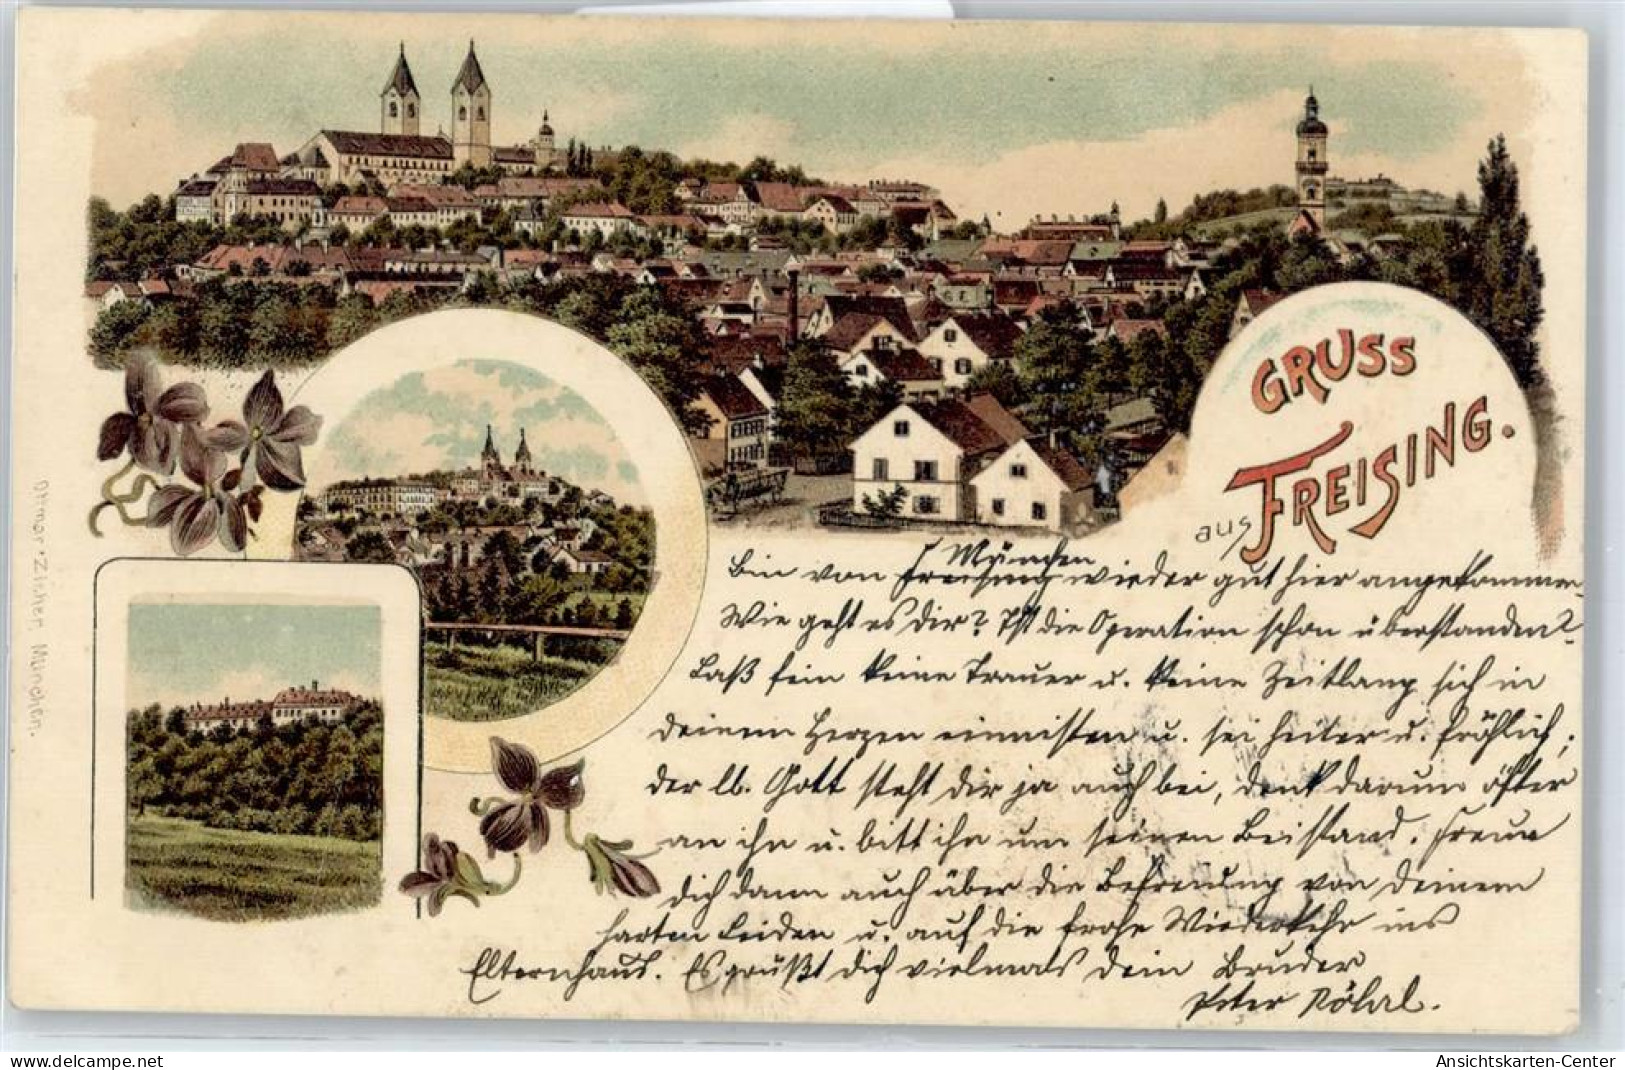 GRUSS
aus FREISING.
Ottmar Zieher, München.
Bin von Freising München wieder gut hier angekommen.
Wie geht es dir? Ist die Operation schon überstanden?
Laß fein keine Trauer u. keine Zeitlang sich in
deinem Herzen einnisten u. sei heiter u. fröhlich;
der lb. Gott steht dir ja auch bei, denk darum öfter
an ihn u. bitt ihn um seinen Beistand. Freue
dich dann auch über die Befreiung von deinem
harten Leiden u. auf die frohe Wiederkehr ins
Elternhaus. Es grüßt dich vielmals dein Bruder
Peter
delcampe.net
Ansichtskarten-Center